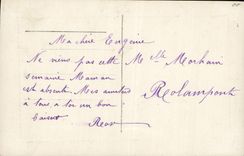 Ma chère Eugénie
Ne viens pas cette
semaine Maman
est absente. Mes amitiés
à tous, à toi un bon
baiser
Mlle Morhain
Rolampont